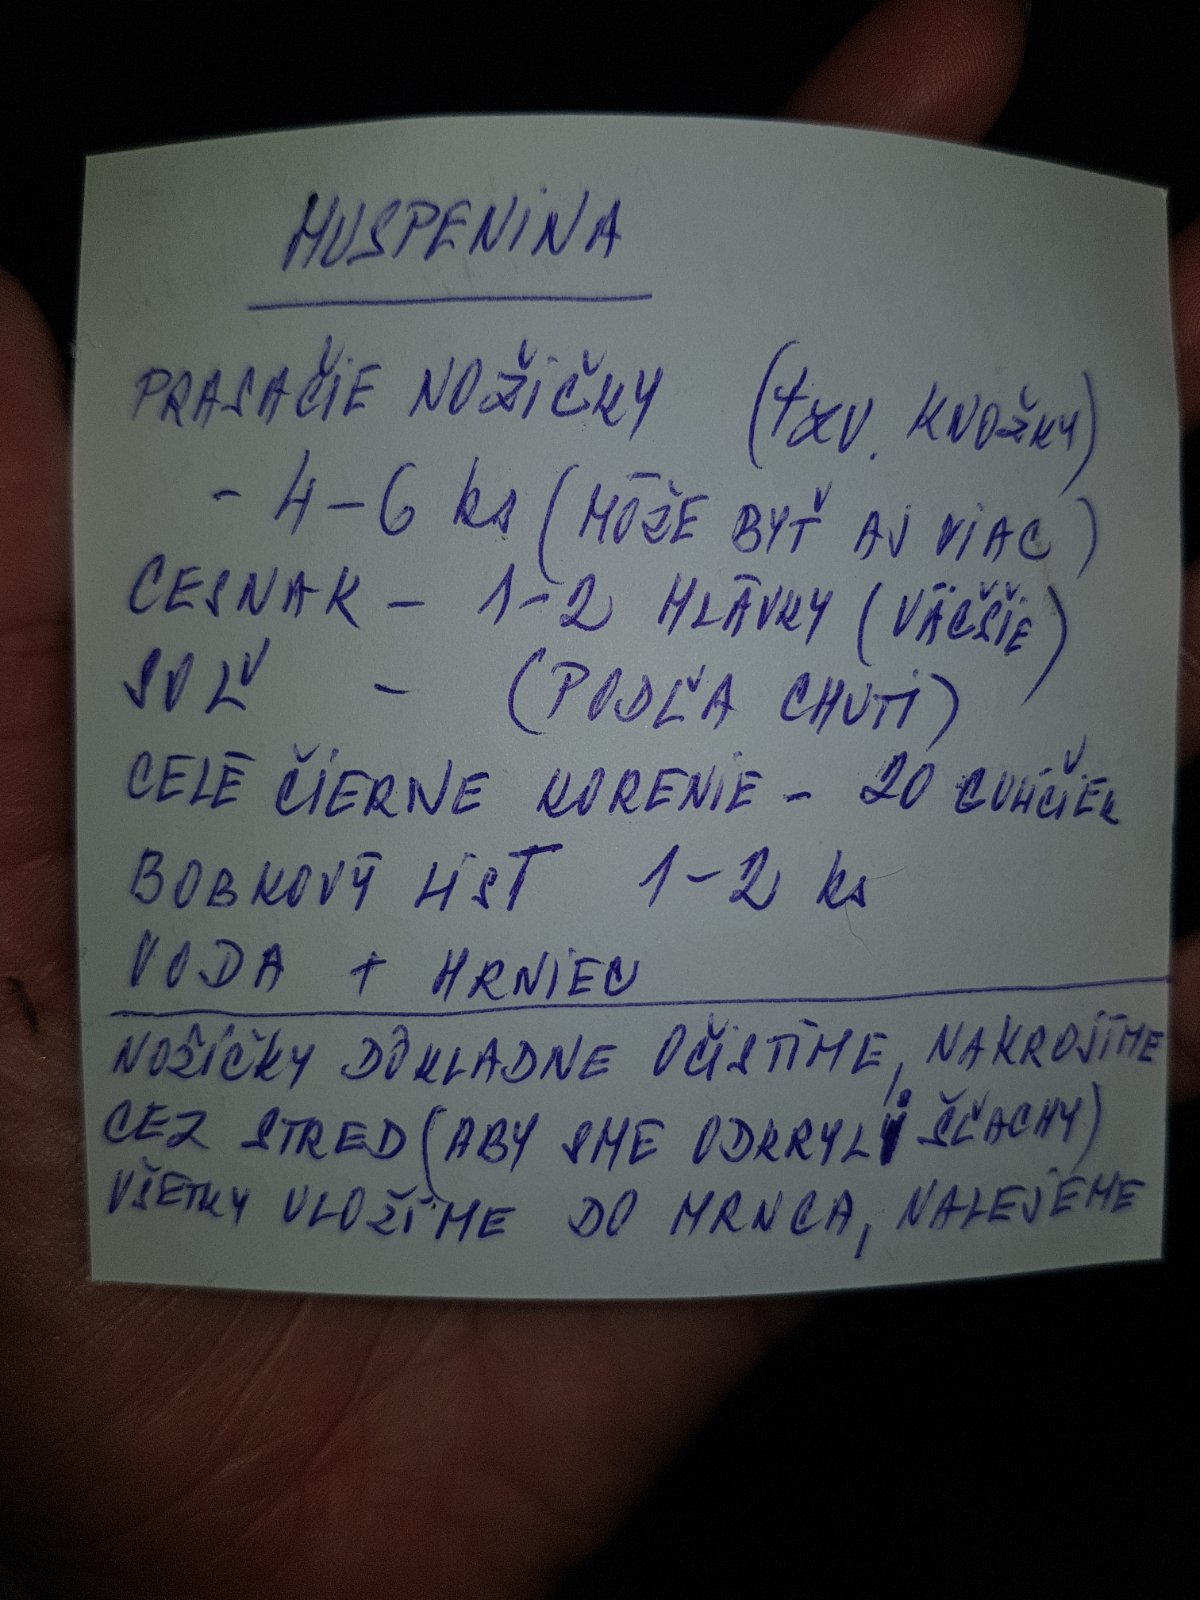 HUSPENINA
PRASAČIE NOŽIČKY (tzv. KNOŽKY)
- 4-6 ks (MÔŽE BYŤ AJ VIAC)
CESNAK - 1-2 HLÁVKY (VÄČŠIE)
SOĽ - (PODĽA CHUTI)
CELÉ ČIERNE KORENIE - 20 GULIČIEK
BOBKOVÝ LIST 1-2 ks
VODA + HRNIEC
NOŽIČKY DÔKLADNE OČISTÍME, NAKROJÍME
CEZ STRED (ABY SME ODKRYLI ŠĽACHY)
VŠETKY VLOŽÍME DO HRNCA, NALEJEME